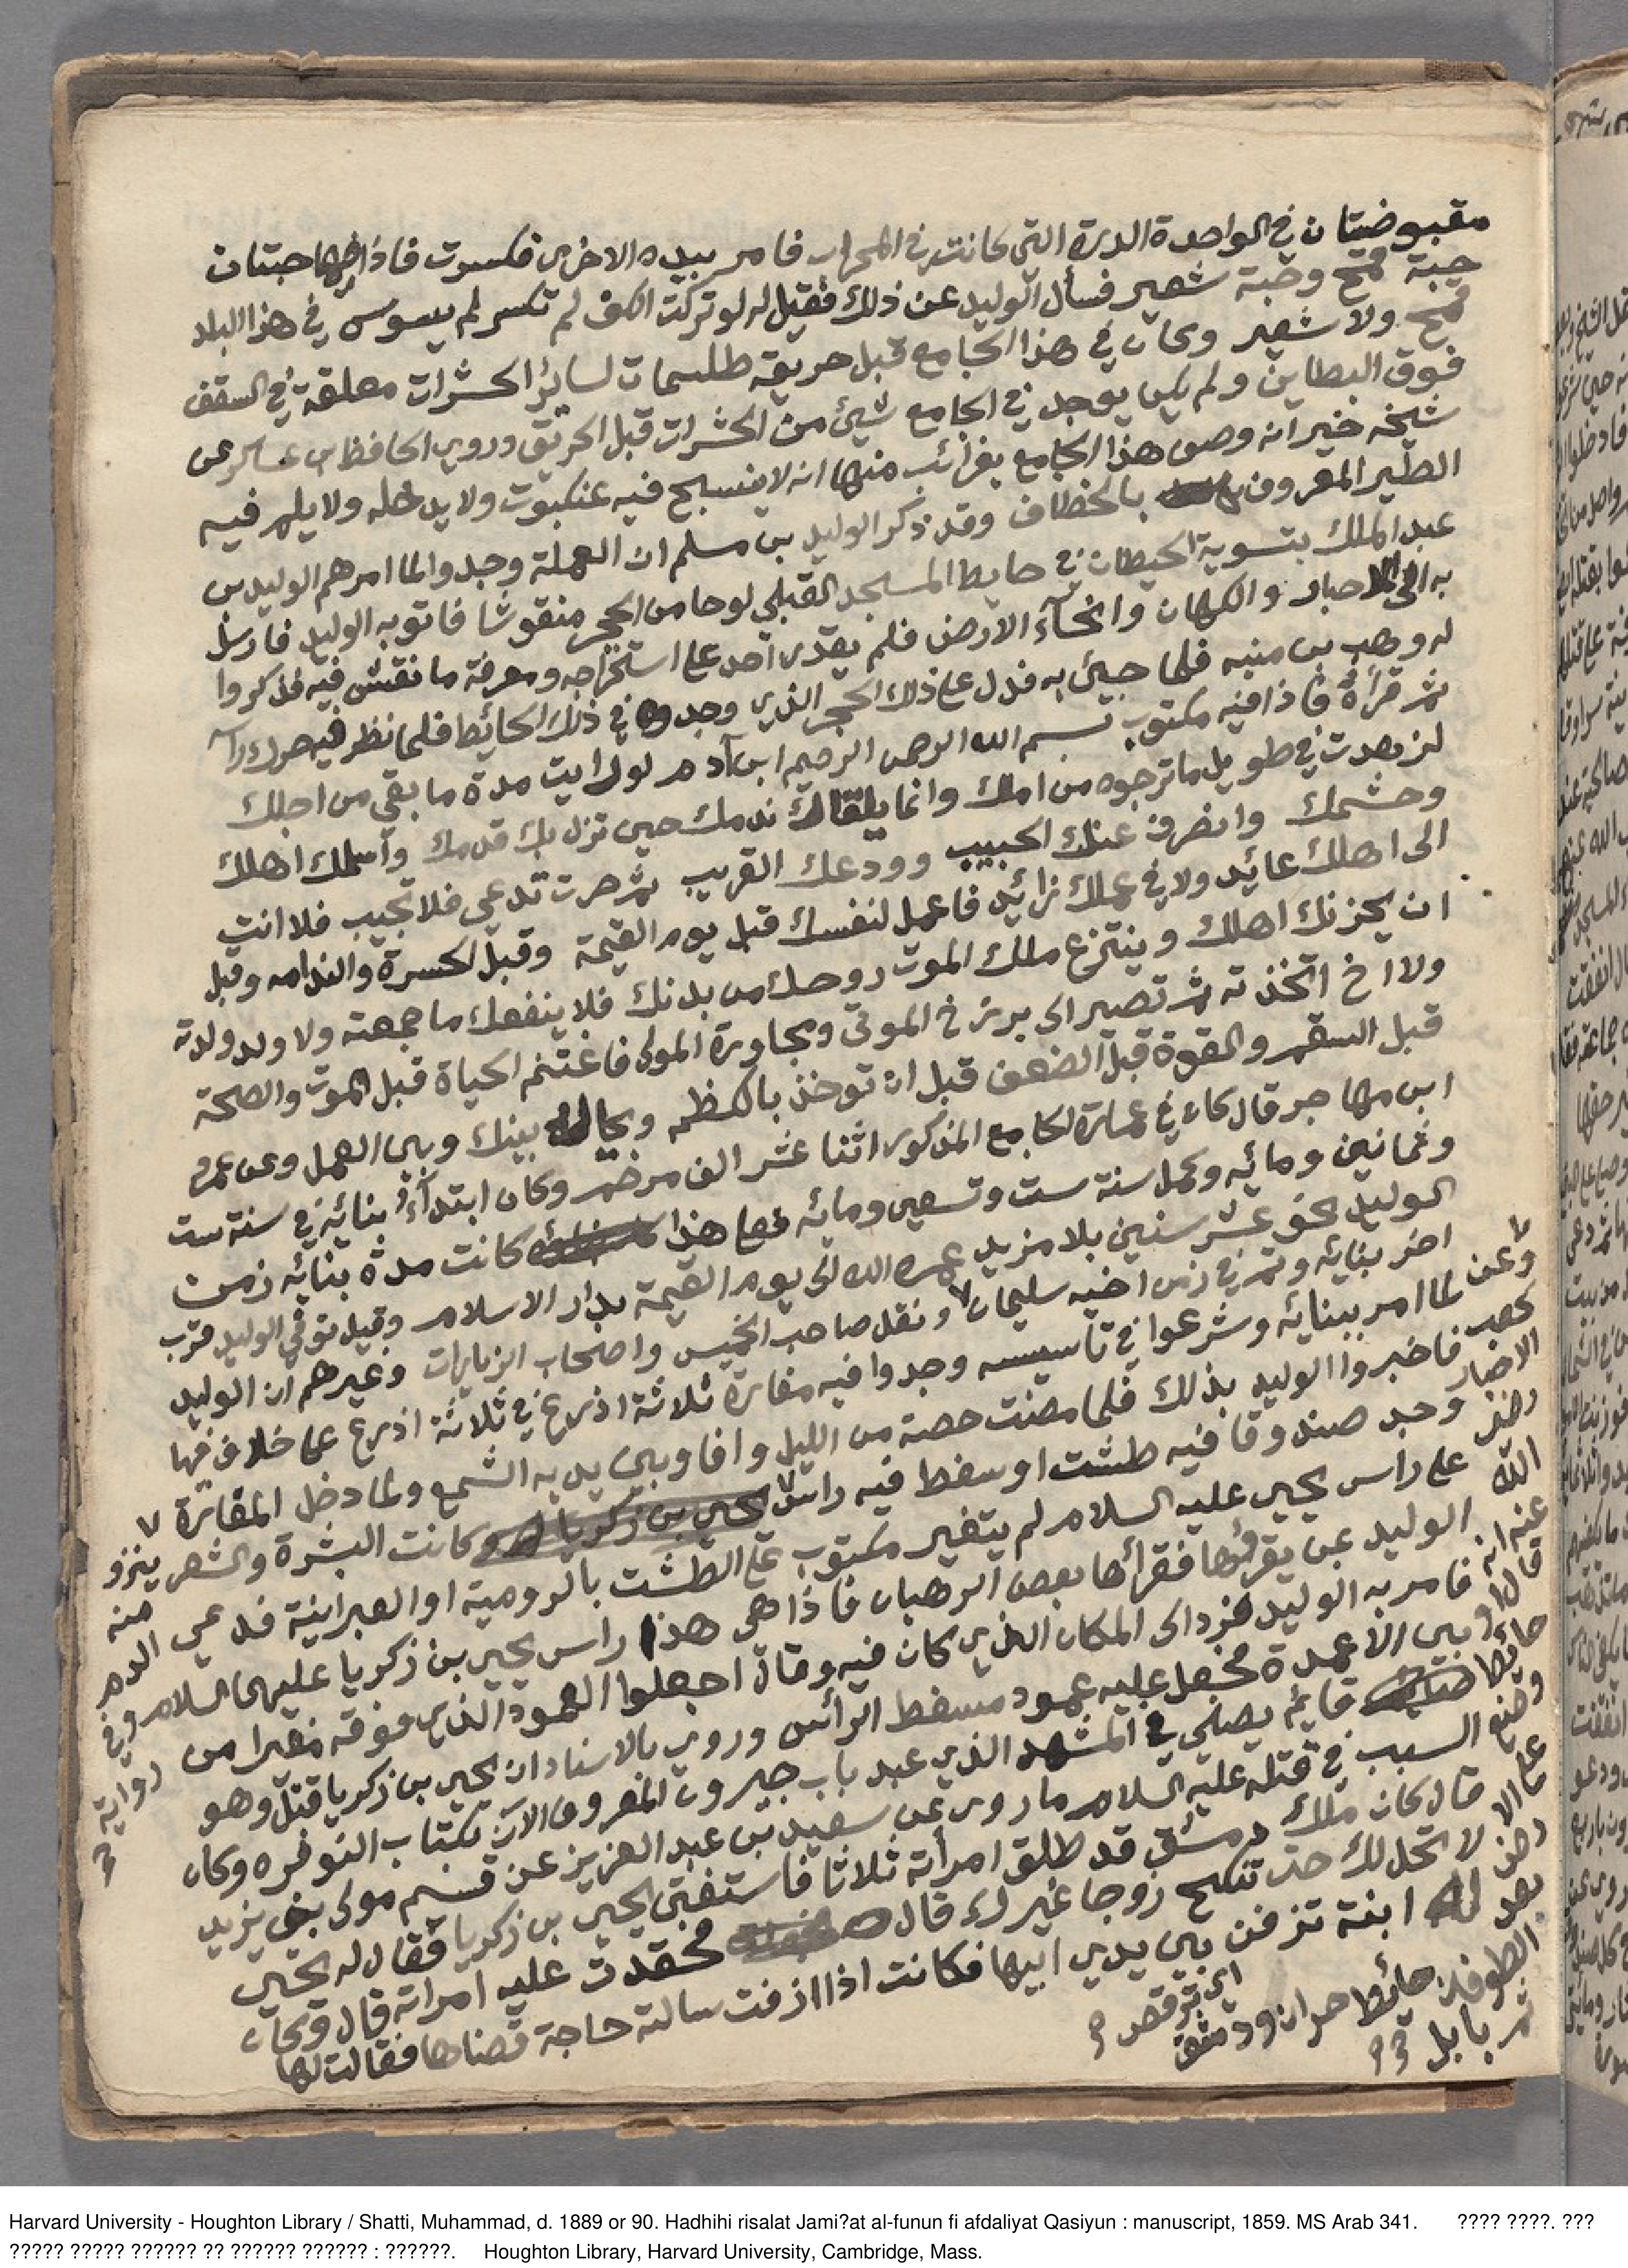 مقبوضتان في الواحدة الدرة التي كانت في المحراب فامر بيده الاخرى فكسرت فاذا فيها حبتان
حبة قمح وحبة شعير فسأل الوليد عن ذلك فقيل له لو تركت الكف لم تكسر لم يسوس في هذا البلد
قمح ولا شعير وكان في هذا الجامع قبل حريقه طلسمات لسائر الحشرات معلقة في السقف
فوق البطاين ولم يكن يوجد في الجامع شيئ من الحشرات قبل الحريق وروي الحافظ بن عساكر عن
شيخه خبر انه وصف هذا الجامع بغرائب منها انه لا ينسج فيه عنكبوت ولا يدخله ولا يلم فيه
الطير المعروف بالخطاف وقد ذكر الوليد بن مسلم ان العملة وجدوا لما امرهم الوليد بن
عبد الملك بتسوية الحيطان في حايط المسجد القبلي لوحا من الحجر منقوشا فاتو به الوليد فارسل
به الى الاحبار والكهان وانحآء الارض فلم يقدر احد على استخراجه ومعرفة ما نقش فيه فذكروا
له وهب بن منبه فلما جيئ به فدل على ذلك الحجر الذي وجدوه في ذلك الحائط فلما نظر فيه حرك رآ
ثم قرأه فاذا فيه مكتوب بسم الله الرحمن الرحيم ابن آدم لو رايت مدة ما بقي من اجلك
لزهدت في طويل ما ترجوه من املك وانما يلقاك ندمك حين تزل بك قدمك واسلمك اهلك
وحشمك وانصرف عنك الحبيب وودعك القريب ثم صرت تدعي فلا تجيب فلا انت
الى اهلك عائد ولا في عملك زائد فاعمل لنفسك قبل يوم القيمة وقبل الحسرة والندامه وقبل
ان يحزنك اهلك وينتزع ملك الموت روحك من بدنك فلا ينفعك ما جمعته ولا ولد ولدته
ولا اخ اتخذته ثم تصير الى برزخ الموتى ومجاورة المولى فاغتنم الحياة قبل الموت والصحة
قبل السقم والقوة قبل الضعف قبل ان توخذ بالكظم ويحال بينك وبين العمل وعن عمرو
ابن مهاجر قال كان في عمارة الجامع المذكور اثنا عشر الف مرخم وكان ابتدآء بنائه في سنة ست
وثمانين ومائه وكمل سنة ست وتسعين ومائه فعلى هذا كانت مدة بنائه زمن
الوليد نحو عشر سنين بلا مزيد عمره الله الى يوم القيمة بدار الاسلام وقيل توفي الوليد قرب
اخر بنائه وتم في زمن اخيه سليمان ونقل صاحب الخميس واصحاب الزيارات وغيرهم ان الوليد
لما امر ببنائه وشرعوا في تاسيسه وجدوا فيه مغارة ثلاثة اذرع في ثلاثة اذرع على خلاف فيها
فاخبروا الوليد بذلك فلما مضت حصة من الليل وافا وبين يديه الشمع ولما دخل المغارة
وجد صندوقا فيه طشت او سفط فيه راس وكانت البشرة والشعر
على راس يحيى عليه السلام لم يتغير مكتوب على الطشت بالرومية او العبرانية فدعى
الوليد عن يقرؤها فقرأها بعض الرهبان فاذا هي هذا راس يحيى بن زكريا عليهما السلام
فامر به الوليد فرد الى المكان الذي كان فيه وقال اجعلوا العمود الذي فوقه مغيرا من
بين الاعمدة فجعل عليه عمود مسفط الرأس وروي بالاسناد ان يحيى بن زكريا قتل وهو
قايم يصلي في المشهد الذي عند باب جيرون المعروف الآن بكتاب النوفره وكان
السبب في قتله عليه السلام ما روى عن سعيد بن عبد العزيز عن قسيم مولى بني يزيد
قال كان ملك دمشق قد طلق امرأته ثلاثا فاستفتى يحيى بن زكريا فقال له يحيى
لا تحل لك حتى تنكح زوجا غيرك قال فحقدت عليه امراته قال وكان
ابنة تزفن بين يدي ابيها فكانت اذا ازفنت سالته حاجة قضاها فقالت لها
وعن
كعب
الاخبار
رضي
الله
عنه انه
قال
حائط
وضع
على الا
رض
بعد
الطوفان حائط حران ودمشق
ثم بابل
ينزو
منه
الدم
وفي
رواية
اي ترقص